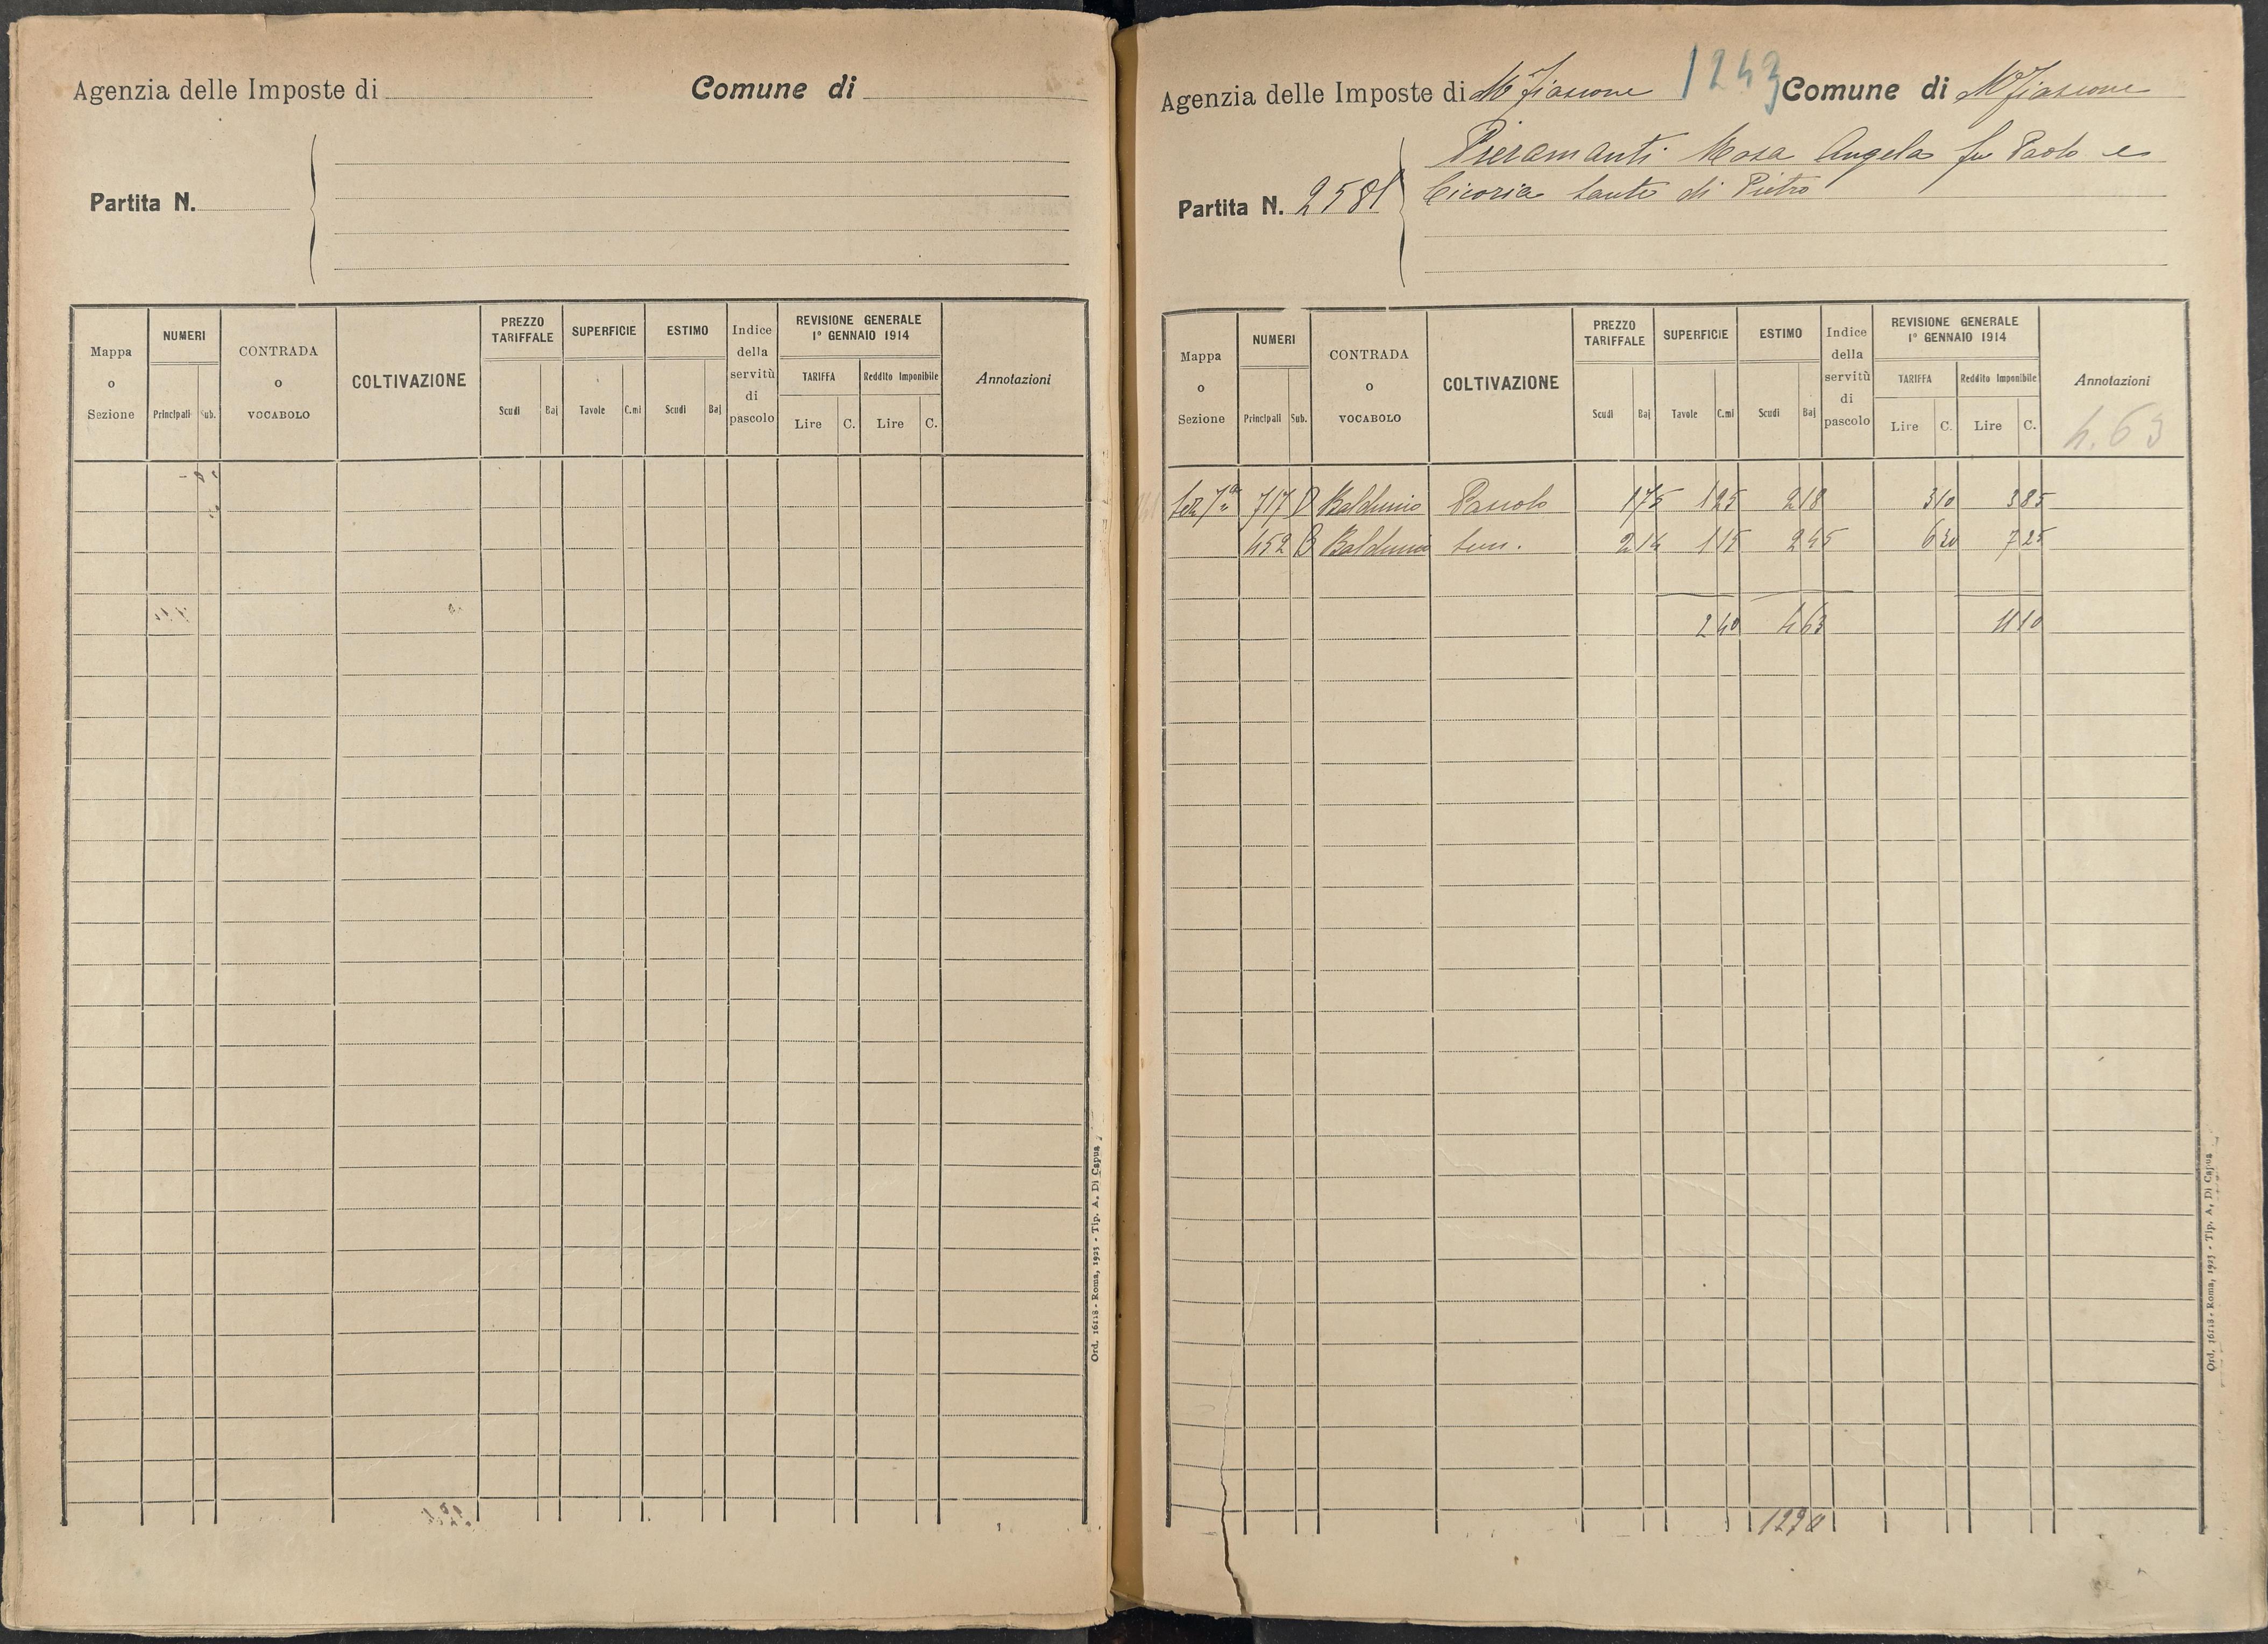 Agenzia delle Imposte di
Comune di
Partita N.
Mappa o Sezione
NUMERI
Principali
Sub.
CONTRADA o VOCABOLO
COLTIVAZIONE
PREZZO TARIFFALE
Scudi
Baj
SUPERFICIE
Tavole
C.mi
ESTIMO
Scudi
Baj
Indice della servitù di pascolo
REVISIONE GENERALE
1° GENNAIO 1914
TARIFFA
Lire
C.
Reddito Imponibile
Lire
C.
Annotazioni
Ord. 16118 - Roma, 1923 - Tip. A. Di Capua
Agenzia delle Imposte di M Fiascone
1243
Comune di M Fiascone
Partita N. 2581
Pieramanti Rosa Angela fu Paolo e
Cicoria Sante di Pietro
Mappa o Sezione
NUMERI
Principali
Sub.
CONTRADA o VOCABOLO
COLTIVAZIONE
PREZZO TARIFFALE
Scudi
Baj
SUPERFICIE
Tavole
C.mi
ESTIMO
Scudi
Baj
Indice della servitù di pascolo
REVISIONE GENERALE
1° GENNAIO 1914
TARIFFA
Lire
C.
Reddito Imponibile
Lire
C.
Annotazioni
4.63
717 Pascolo 175 125 218 310 385
452 Sem. 214 115 245 630 725
240 463 1110
1290
Ord. 16118 - Roma, 1923 - Tip. A. Di Capua